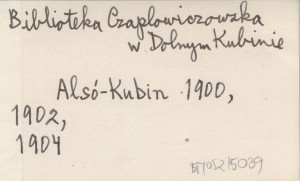 Biblioteka Czaplowiczowska
w Dolnym Kubinie
Alsó-Kubin 1900,
1902,
1904